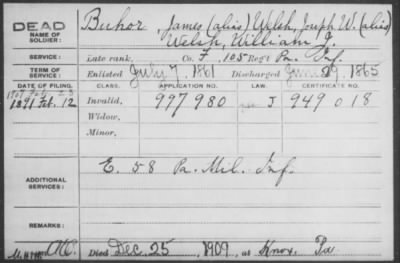 DEAD
NAME OF SOLDIER: Buhor, James (alias) Welsh, Joseph W. (alias)
Welsh, William J.
SERVICE: Late rank, Co. F, 105 Reg't Pa. Inf.
TERM OF SERVICE: Enlisted July 7, 1861 Discharged June 29, 1865
DATE OF FILING. CLASS. APPLICATION NO. CERTIFICATE NO.
1891 Feb. 12 Invalid, 997980 J 949018
Widow,
Minor,
ADDITIONAL SERVICES: E. 58 Pa. Mil. Inf.
REMARKS:
Died Dec. 25, 1909, at Knox, Pa